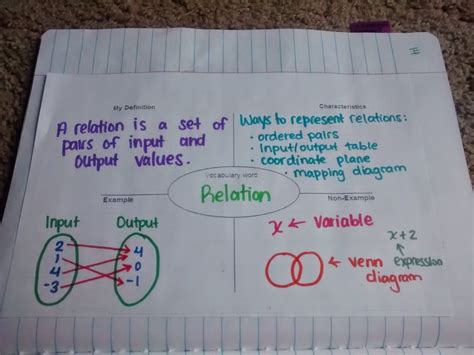 II
My Definition
A relation is a set of
pairs of input and
output values.
Characteristics
Ways to represent relations:
· ordered pairs
· Input/output table
· coordinate plane
· mapping diagram
Vocabulary word
Relation
Example
Input Output
2
1
4
-3
4
0
-1
Non-Example
x ← variable
x+2
expression
← venn
diagram